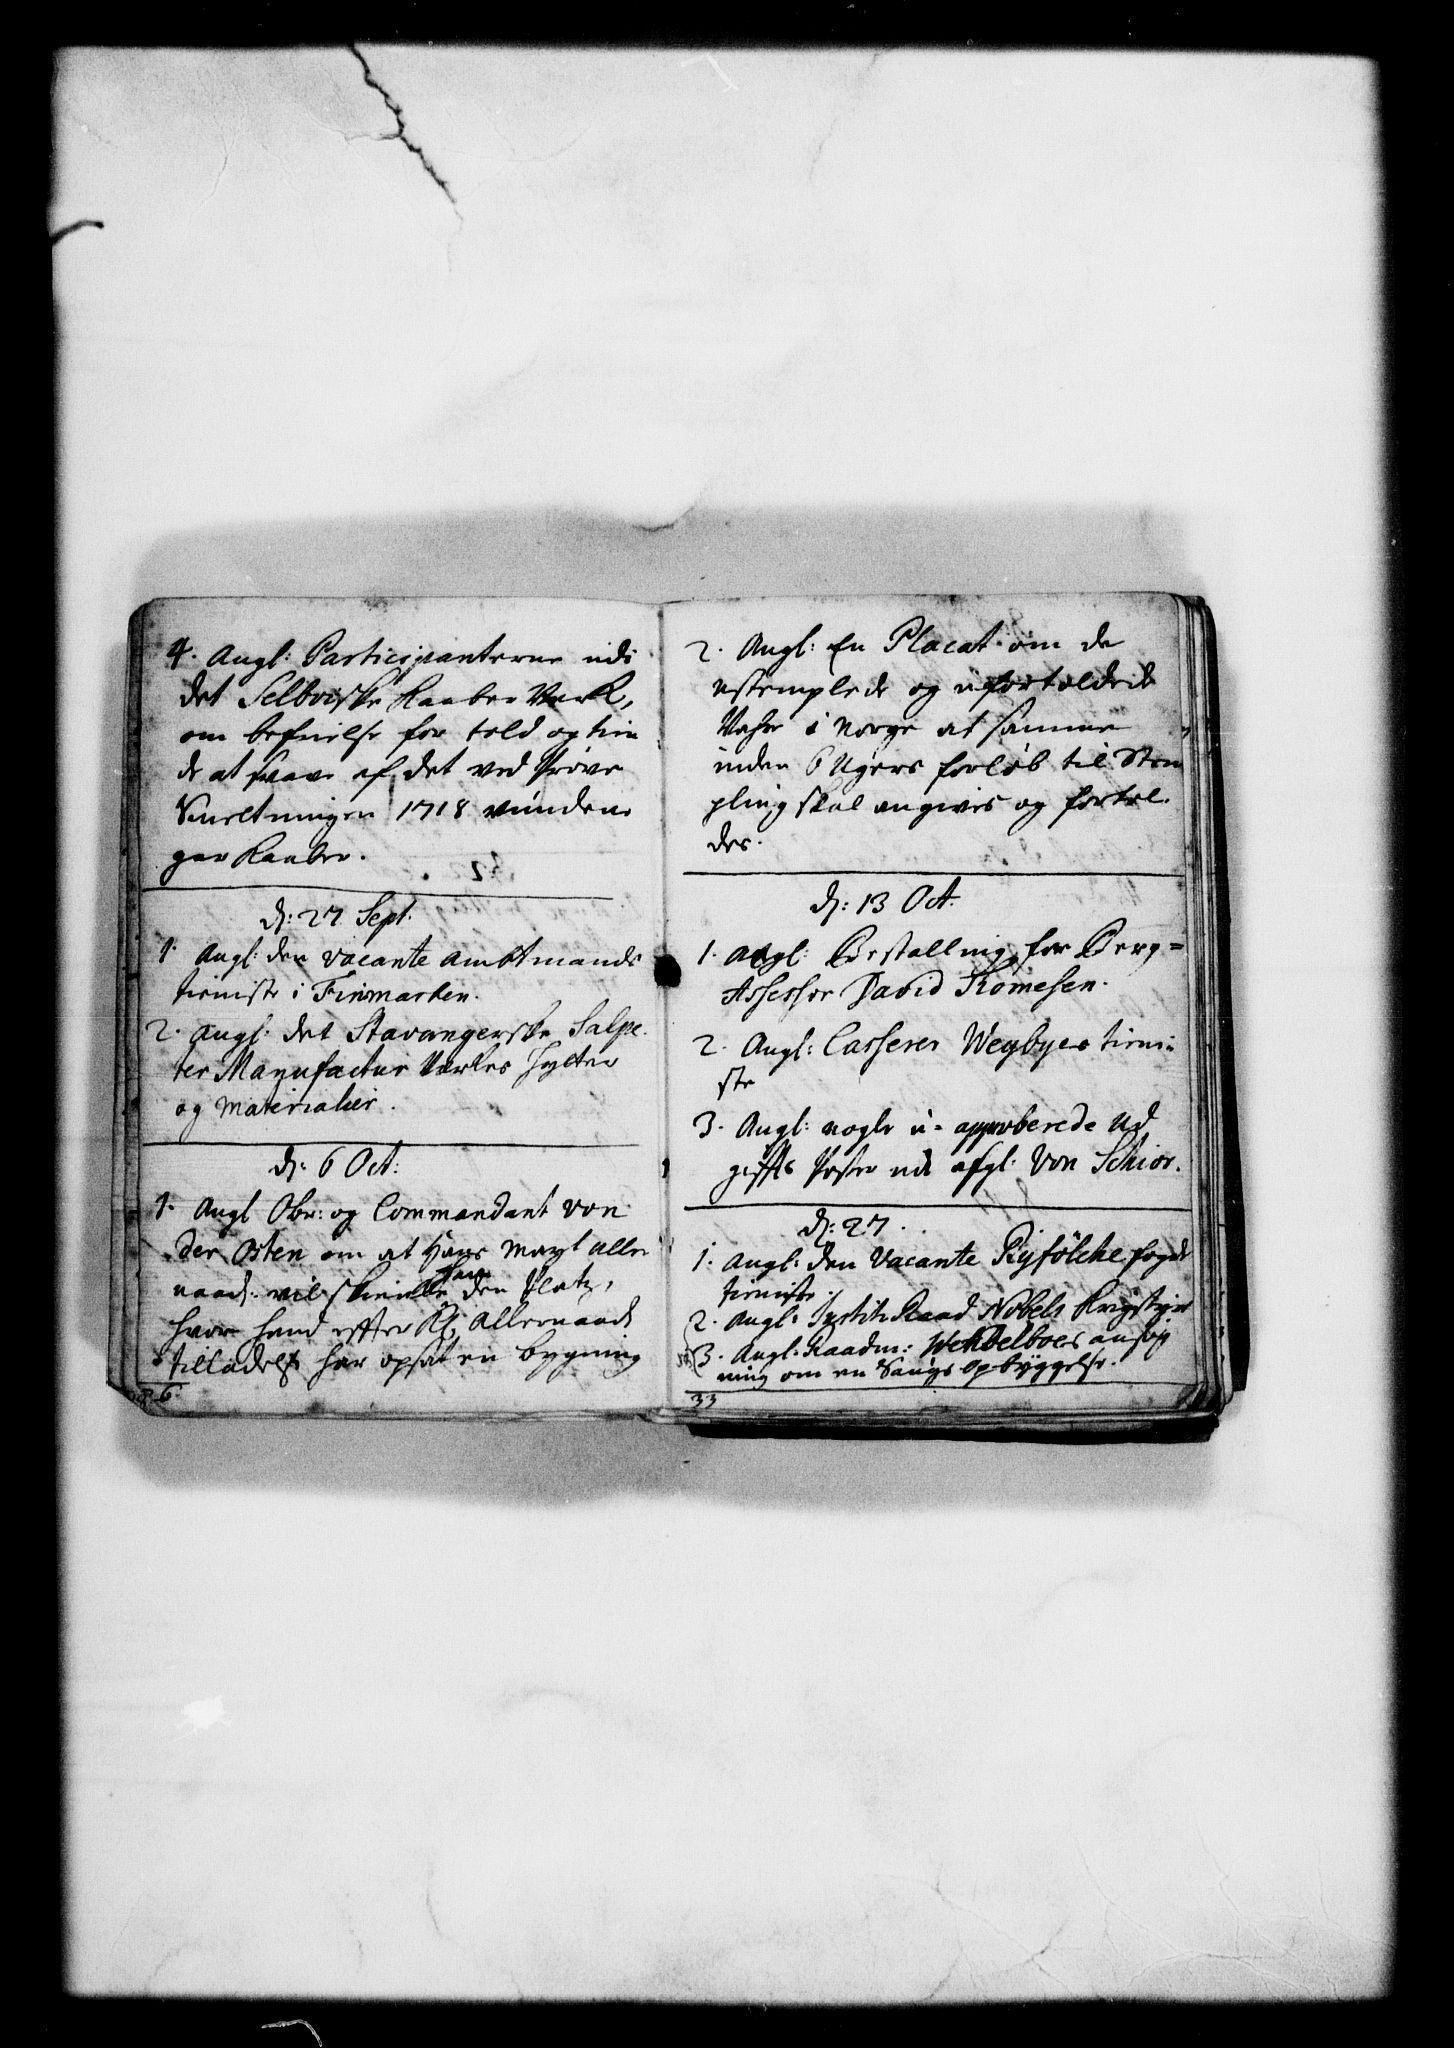 4. Angl: Participanterne udi
det Selboiske Kaaber Verk,
om befrielse for told og tien
de at svare af det ved Prøve
Smeltningen 1718 vundene
gar Kaaber.
d: 27 Sept.
1. Angl: den vacante Ambtmands
tieniste i Finmarken.
2. Angl: det Stavangerske Salpe
ter Manufactur Verkes Hytter
og Materialier.
d: 6 Oct:
1. Angl Obr: og Commandant von
der Osten om at Hans Mayt aller
naad: vil skienke ham den Platz,
hvor hand efter Kg. Allernaad
tilladelse har opsat en bygning
6
2. Angl: En Placat om de
ustemplede og ufortoldede
Vahre i Norge at samme
inden 6 Ugers forløb til Stem
pling skal angives og fortol
des.
d: 13 Oct.
1. Angl: Bestalling for Berg=
Assessor David Komesen.
2. Angl: Casserer Weybyes tieni
ste
3. Angl: nogle u-approberede Ud
gifts Poster udi afgl. Von Schior.
d: 27.
1. Angl: den Vacante Ryfölcke fogde
tieniste.
2. Angl: Justits Raad Nobels
3. Angl: Raadm: Wendelboes ansøg
ning om en Saugs Opbyggelse.
33